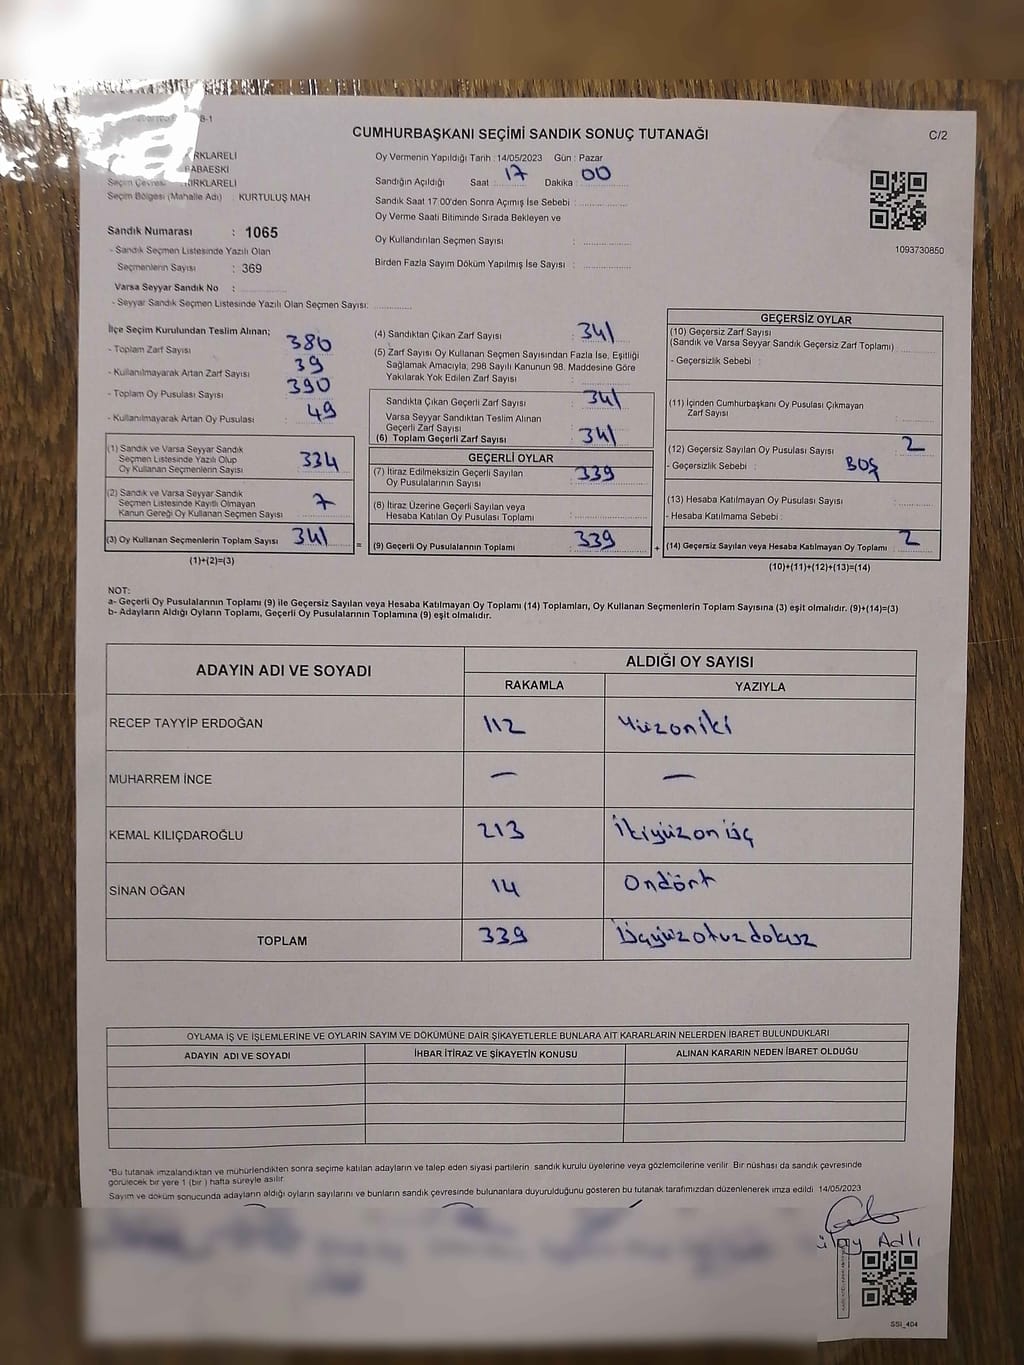 CUMHURBAŞKANI SEÇİMİ SANDIK SONUÇ TUTANAĞI
C/2
RKLARELİ
BABAESKİ
Seçim Çevresi KIRKLARELİ
Seçim Bölgesi (Mahalle Adı) : KURTULUŞ MAH
Sandık Numarası : 1065
- Sandık Seçmen Listesinde Yazılı Olan
Seçmenlerin Sayısı : 369
Varsa Seyyar Sandık No :
- Seyyar Sandık Seçmen Listesinde Yazılı Olan Seçmen Sayısı:
Oy Vermenin Yapıldığı Tarih : 14/05/2023 Gün : Pazar
Sandığın Açıldığı Saat : 17 Dakika : 00
Sandık Saat 17:00'den Sonra Açımış İse Sebebi :
Oy Verme Saati Bitiminde Sırada Bekleyen ve
Oy Kullandırılan Seçmen Sayısı :
Birden Fazla Sayım Döküm Yapılmış İse Sayısı :
1093730850
İlçe Seçim Kurulundan Teslim Alınan;
- Toplam Zarf Sayısı : 380
- Kullanılmayarak Artan Zarf Sayısı : 39
- Toplam Oy Pusulası Sayısı : 390
- Kullanılmayarak Artan Oy Pusulası : 49
(1) Sandık ve Varsa Seyyar Sandık
Seçmen Listesinde Yazılı Olup
Oy Kullanan Seçmenlerin Sayısı : 334
(2) Sandık ve Varsa Seyyar Sandık
Seçmen Listesinde Kayıtlı Olmayan
Kanun Gereği Oy Kullanan Seçmen Sayısı : 7
(3) Oy Kullanan Seçmenlerin Toplam Sayısı : 341
(1)+(2)=(3)
(4) Sandıktan Çıkan Zarf Sayısı : 341
(5) Zarf Sayısı Oy Kullanan Seçmen Sayısından Fazla İse, Eşitliği
Sağlamak Amacıyla, 298 Sayılı Kanunun 98. Maddesine Göre
Yakılarak Yok Edilen Zarf Sayısı :
Sandıkta Çıkan Geçerli Zarf Sayısı : 341
Varsa Seyyar Sandıktan Teslim Alınan
Geçerli Zarf Sayısı :
(6) Toplam Geçerli Zarf Sayısı : 341
GEÇERLİ OYLAR
(7) İtiraz Edilmeksizin Geçerli Sayılan
Oy Pusulalarının Sayısı : 339
(8) İtiraz Üzerine Geçerli Sayılan veya
Hesaba Katılan Oy Pusulası Toplamı :
= (9) Geçerli Oy Pusulalarının Toplamı : 339
GEÇERSİZ OYLAR
(10) Geçersiz Zarf Sayısı
(Sandık ve Varsa Seyyar Sandık Geçersiz Zarf Toplamı) :
- Geçersizlik Sebebi :
(11) İçinden Cumhurbaşkanı Oy Pusulası Çıkmayan
Zarf Sayısı :
(12) Geçersiz Sayılan Oy Pusulası Sayısı : 2
- Geçersizlik Sebebi : BOŞ
(13) Hesaba Katılmayan Oy Pusulası Sayısı :
- Hesaba Katılmama Sebebi :
+ (14) Geçersiz Sayılan veya Hesaba Katılmayan Oy Toplamı : 2
(10)+(11)+(12)+(13)=(14)
NOT:
a- Geçerli Oy Pusulalarının Toplamı (9) ile Geçersiz Sayılan veya Hesaba Katılmayan Oy Toplamı (14) Toplamları, Oy Kullanan Seçmenlerin Toplam Sayısına (3) eşit olmalıdır. (9)+(14)=(3)
b- Adayların Aldığı Oyların Toplamı, Geçerli Oy Pusulalarının Toplamına (9) eşit olmalıdır.
ADAYIN ADI VE SOYADI ALDIĞI OY SAYISI
RAKAMLA YAZIYLA
RECEP TAYYİP ERDOĞAN 112 Yüzoniki
MUHARREM İNCE — —
KEMAL KILIÇDAROĞLU 213 İkiyüzonüç
SİNAN OĞAN 14 Ondört
TOPLAM 339 Üçyüzotuzdokuz
OYLAMA İŞ VE İŞLEMLERİNE VE OYLARIN SAYIM VE DÖKÜMÜNE DAİR ŞİKAYETLERLE BUNLARA AİT KARARLARIN NELERDEN İBARET BULUNDUKLARI
ADAYIN ADI VE SOYADI İHBAR İTİRAZ VE ŞİKAYETİN KONUSU ALINAN KARARIN NEDEN İBARET OLDUĞU
*Bu tutanak imzalandıktan ve mühürlendikten sonra seçime katılan adayların ve talep eden siyasi partilerin sandık kurulu üyelerine veya gözlemcilerine verilir. Bir nüshası da sandık çevresinde
görülecek bir yere 1 (bir) hafta süreyle asılır.
Sayım ve döküm sonucunda adayların aldığı oyların sayılarını ve bunların sandık çevresinde bulunanlara duyurulduğunu gösteren bu tutanak tarafımızdan düzenlenerek imza edildi. 14/05/2023
Adlı
SSI_404